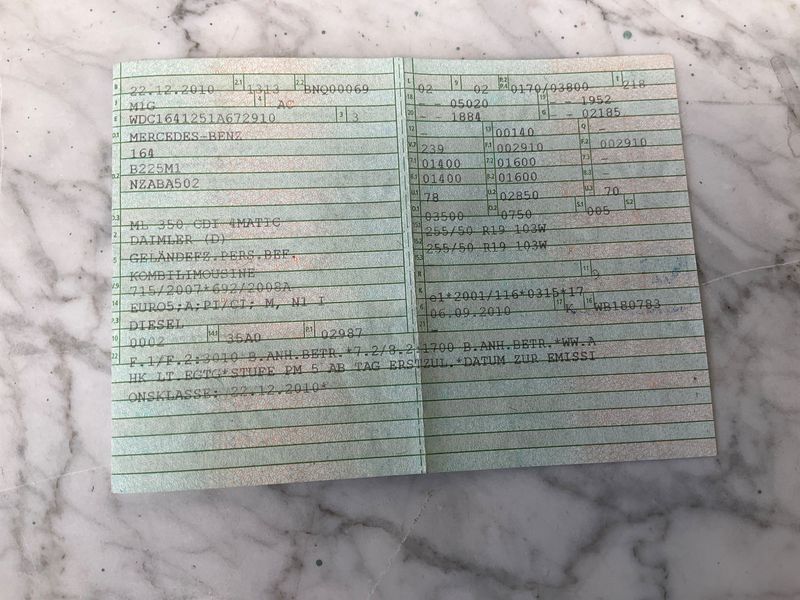 B 22.12.2010 2.1 1313 2.2 BNQ00069
J M1G 4 AC
E WDC1641251A672910 3 3
D.1 MERCEDES-BENZ
164
D.2 B225M1
NZABA502
D.3 ML 350 CDI 4MATIC
2 DAIMLER (D)
5 GELÄNDEFZ.PERS.BEF.
KOMBILIMOUSINE
V.9 715/2007*692/2008A
14 EURO5;A;PI/CI; M, N1 I
P.3 DIESEL
10 0002 14.1 35A0 P.1 02987
22 F.1/F.2:3010 B.ANH.BETR.*7.2/8.2:1700 B.ANH.BETR.*WW.A
HK LT.EGTG*STUFE PM 5 AB TAG ERSTZUL.*DATUM ZUR EMISSI
ONSKLASSE: 22.12.2010*
L 02 9 02 P.2 P.4 0170/03800 T 218
18 - - 05020 19 - - 1952
20 - - 1884 G - 02185
12 - 13 00140 Q -
V.7 239 F.1 002910 F.2 002910
7.1 01400 7.2 01600 7.3 -
8.1 01400 8.2 01600 8.3 -
U.1 78 U.2 02850 U.3 70
O.1 03500 O.2 0750 S.1 005 S.2
255/50 R19 103W
255/50 R19 103W
R 11 9
K e1*2001/116*0315*17
6 06.09.2010 17 K 16 WR180783
21 -